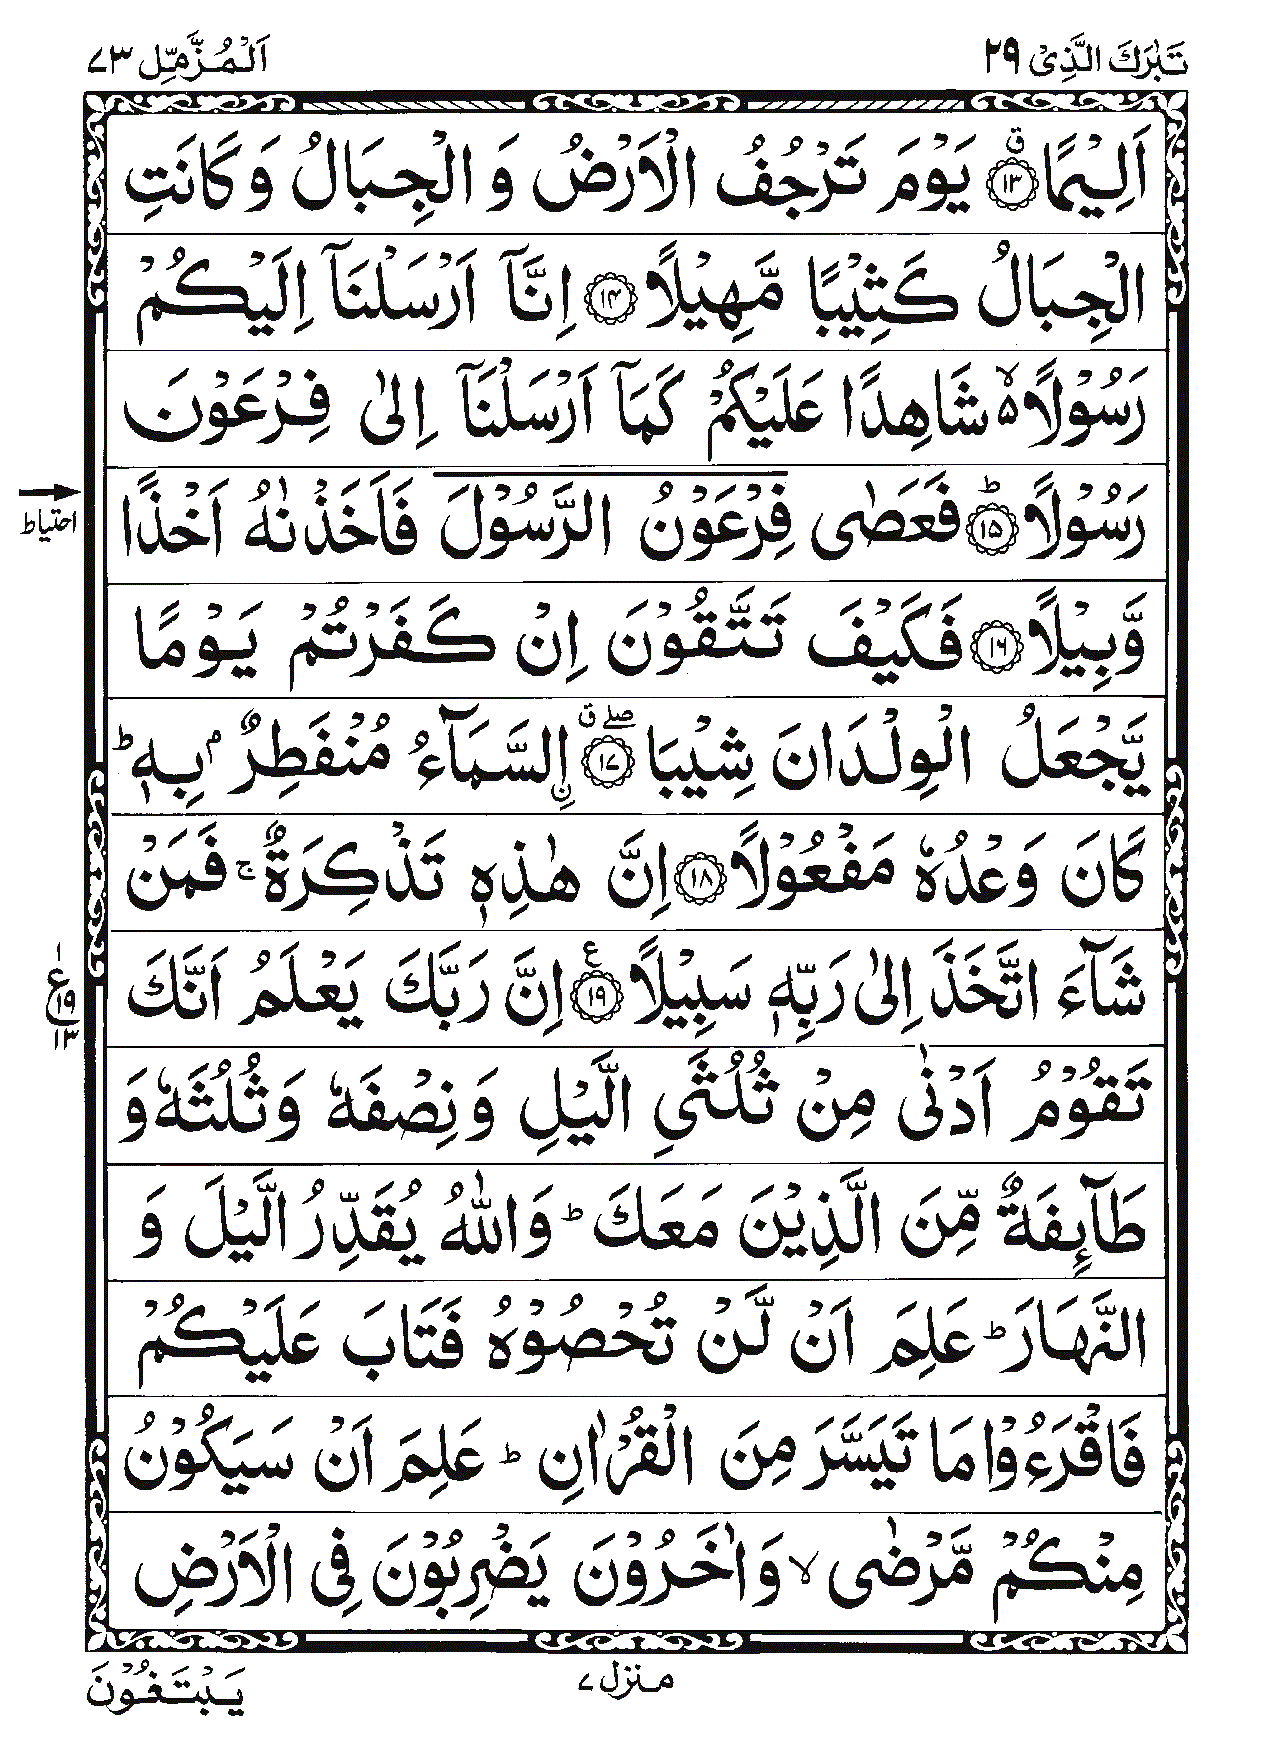 تَبٰرَكَ الَّذِیْ ۲۹
اَلْمُزَّمِّل ۷۳
اَلِیْمًا ۙ۝۱۳ یَوْمَ تَرْجُفُ الْاَرْضُ وَ الْجِبَالُ وَ كَانَتِ
الْجِبَالُ كَثِیْبًا مَّهِیْلًا ۝۱۴ اِنَّاۤ اَرْسَلْنَاۤ اِلَیْكُمْ
رَسُوْلًا ۙ۬ شَاهِدًا عَلَیْكُمْ كَمَاۤ اَرْسَلْنَاۤ اِلٰى فِرْعَوْنَ
رَسُوْلًا ؕ۝۱۵ فَعَصٰى فِرْعَوْنُ الرَّسُوْلَ فَاَخَذْنٰهُ اَخْذًا
احتیاط
وَّبِیْلًا ۝۱۶ فَكَیْفَ تَتَّقُوْنَ اِنْ كَفَرْتُمْ یَوْمًا
یَّجْعَلُ الْوِلْدَانَ شِیْبَا ۝۱۷ صلے ق اِ۟لسَّمَآءُ مُنْفَطِرٌۢ بِهٖ ؕ
كَانَ وَعْدُهٗ مَفْعُوْلًا ۝۱۸ اِنَّ هٰذِهٖ تَذْكِرَةٌ ۚ فَمَنْ
شَآءَ اتَّخَذَ اِلٰى رَبِّهٖ سَبِیْلًا ۝۱۹ ع اِنَّ رَبَّكَ یَعْلَمُ اَنَّكَ
۱
ع ۱۹
۱۳
تَقُوْمُ اَدْنٰى مِنْ ثُلُثَیِ الَّیْلِ وَ نِصْفَهٗ وَ ثُلُثَهٗ وَ
طَآىِٕفَةٌ مِّنَ الَّذِیْنَ مَعَكَ ؕ وَ اللّٰهُ یُقَدِّرُ الَّیْلَ وَ
النَّهَارَ ؕ عَلِمَ اَنْ لَّنْ تُحْصُوْهُ فَتَابَ عَلَیْكُمْ
فَاقْرَءُوْا مَا تَیَسَّرَ مِنَ الْقُرْاٰنِ ؕ عَلِمَ اَنْ سَیَكُوْنُ
مِنْكُمْ مَّرْضٰى ۙ وَ اٰخَرُوْنَ یَضْرِبُوْنَ فِی الْاَرْضِ
منزل ۷
یَبْتَغُوْنَ